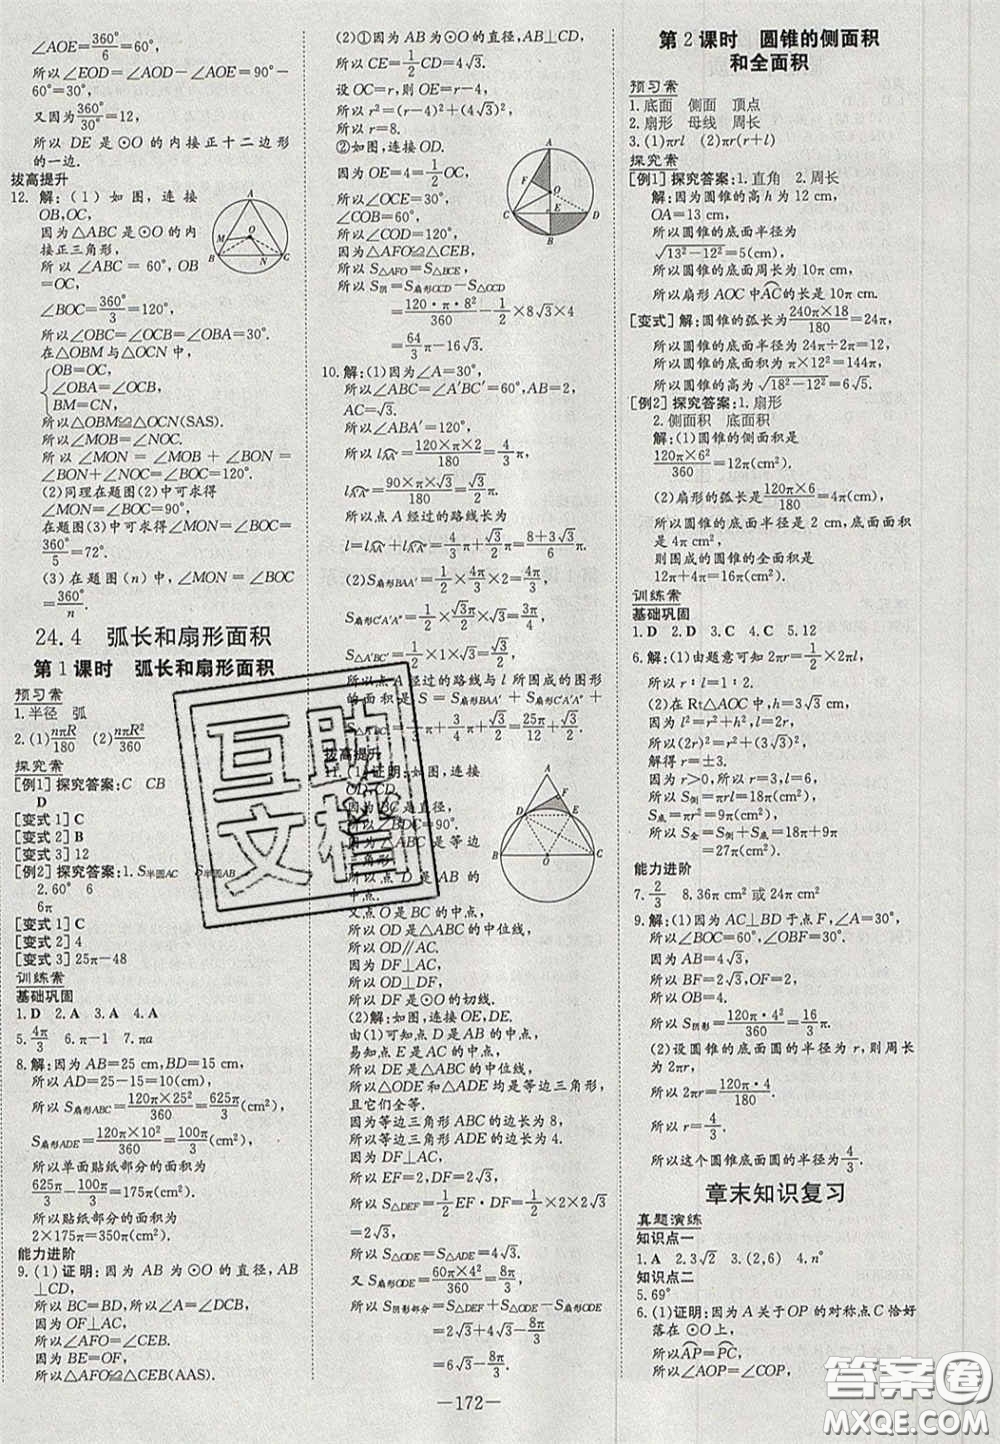 ∠AOE=360°/6=60°,
所以∠EOD=∠AOD-∠AOE=90°-
60°=30°.
又因为360°/30°=12,
所以 DE 是⊙O 的内接正十二边形
的一边.
拔高提升
12. 解:(1) 如图,连接
OB,OC,
因为△ABC 是⊙O 的内
接正三角形,
所以∠ABC=60°,OB=
OC,
∠BOC=360°/3=120°,
所以∠OBC=∠OCB=∠OBA=30°.
在△OBM与△OCN中,
OB=OC,
∠OBA=∠OCB,
BM=CN,
所以△OBM≌△OCN(SAS).
所以∠MOB=∠NOC.
所以∠MON=∠MOB+∠BON=
∠BON+∠NOC=∠BOC=120°.
(2)同理在题图(2)中可求得
∠MON=∠BOC=90°,
在题图(3)中可求得∠MON=∠BOC=
360°/5=72°.
(3)在题图(n)中,∠MON=∠BOC=
360°/n.
24.4 弧长和扇形面积
第1课时 弧长和扇形面积
预习案
1.半径 弧
2.(1)nπR/180 (2)nπR²/360
探究案
[例1] 探究答案:C CB
D
[变式1] C
[变式2] B
[变式3] 12
[例2] 探究答案:1.S半圆AC S半圆AB
2.60° 6
6π
[变式1] C
[变式2] 4
[变式3] 25π-48
训练案
基础巩固
1.D 2.A 3.A 4.A
5.4π/3 6.π-1 7.πa
8.解:因为AB=25 cm,BD=15 cm,
所以AD=25-15=10(cm),
所以S扇形ABC=120π×25²/360=625π/3(cm²),
S扇形ADE=120π×10²/360=100π/3(cm²),
所以单面贴纸部分的面积为
625π/3-100π/3=175π(cm²),
所以贴纸部分的面积为
2×175π=350π(cm²).
能力进阶
9.(1)证明:因为 AB 为⊙O的直径,AB
⊥CD,
所以BC=BD,所以∠A=∠DCB,
因为OF⊥AC,
所以∠AFO=∠CEB.
所以△AFO≌△CEB(AAS).
(2)①因为AB为⊙O的直径,AB⊥CD,
所以CE=1/2CD=4√3.
设OC=r,则OE=r-4,
所以r²=(r-4)²+(4√3)²,
所以r=8.
②如图,连接OD.
因为OE=4=1/2OC,
所以∠OCE=30°,
∠COB=60°,
所以∠COD=120°,
因为△AFO≌△CEB,
所以S△AFO=S△BCE,
所以S阴=S扇形OCD-S△OCD
=120·π·8²/360-1/2×8√3×4
=64/3π-16√3.
10.解:(1)因为∠A=30°,
所以∠ABC=∠A′BC′=60°,AB=2,
AC=√3.
所以∠ABA′=120°,
所以lAA′=120×π×2/180=4/3π,
lA′A″=90×π×√3/180=√3/2π.
所以点A经过的路线长为
l=lAA′+lA′A″=4/3π+√3/2π=8+3√3/6π.
(2)S扇形BAA′=1/2×4/3π×2=4/3π,
S扇形C′A′A″=1/2×√3π/2×√3=3/4π,
S△A′BC′=1/2×1×√3=√3/2,
所以点A经过的路线与l所围成的图形
的面积是S=S扇形BAA′+S扇形C′A′A″+
S△A′BC′=4/3π+3/4π+√3/2=25/12π+√3/2.
拔高提升
11.(1)证明:如图,连接
OD,CD.
因为BC是直径,
所以∠BDC=90°.
因为△ABC是等边
三角形,
所以点D是AB的中点.
又点O是BC的中点,
所以OD是△ABC的中位线,
所以OD∥AC.
因为DF⊥AC,
所以OD⊥DF,
所以DF是⊙O的切线.
(2)解:如图,连接OE,DE.
由(1)可知点D是AB的中点,
易知点E是AC的中点,
所以DE是△ABC的中位线,
所以△ODE和△ADE是等边三角形,
且它们全等.
因为等边三角形ABC的边长为8,
所以等边三角形ADE的边长为4.
因为DF⊥AC,
所以EF=2,DF=2√3,
所以S△DEF=1/2EF·DF=1/2×2×2√3
=2√3.
所以S△ODE=S△ADE=2S△DEF=4√3.
又S扇形ODE=60π×4²/360=8π/3,
所以S阴影部分=S△DEF+S△ODE-S扇形ODE
=2√3+4√3-8π/3
=6√3-8π/3.
第2课时 圆锥的侧面积
和全面积
预习案
1.底面 侧面 顶点
2.扇形 母线 周长
3.(1)πrl (2)πr(r+l)
探究案
[例1] 探究答案:1.直角 2.周长
解:因为圆锥的高h为12 cm,
OA=13 cm,
所以圆锥的底面半径为
√13²-12²=5(cm),
所以圆锥的底面周长为10π cm,
所以扇形AOC中AC的长是10π cm.
[变式] 解:圆锥的弧长为240π×18/180=24π,
所以圆锥的底面半径为24π÷2π=12,
所以圆锥的底面面积为π×12²=144π,
所以圆锥的高为√18²-12²=6√5.
[例2] 探究答案:1.扇形
2.侧面积 底面积
解:(1)圆锥的侧面积是
120π×6²/360=12π(cm²).
(2)扇形的弧长是120π×6/180=4π(cm),
所以圆锥的底面半径是2 cm,底面面积
是4π cm²,
则围成的圆锥的全面积是
12π+4π=16π(cm²).
训练案
基础巩固
1.D 2.D 3.C 4.D 5.12
6.解:(1)由题意可知1/2×2πl=2πr,
所以r∶l=1∶2.
(2)在Rt△AOC中,h=3√3 cm,
因为l²=r²+h²,l=2r,
所以(2r)²=(3√3)²+r²,
解得r=±3.
因为r>0,所以r=3,
所以S侧=πrl=18π(cm²),
S底=πr²=9π(cm²),
所以S全=S侧+S底=18π+9π
=27π(cm²).
能力进阶
7.2/3 8.36π cm²或24π cm²
9.解:(1)因为AC⊥BD于点F,∠A=30°,
所以∠BOC=60°,∠OBF=30°.
因为AB=4√3,
所以BF=2√3,OF=2.
所以OB=4.
所以S阴影=120π·4²/360=16/3π.
(2)设圆锥的底面圆的半径为r,则周长
为2πr,
所以2πr=120π·4/180,
所以r=4/3.
所以这个圆锥底面圆的半径为4/3.
章末知识复习
真题演练
知识点一
1.A 2.3√2 3.(2,6) 4.n°
知识点二
5.69°
6.(1)证明:因为A关于OP的对称点C恰好
落在⊙O上,
所以AP=PC,
所以∠AOP=∠COP,
—172—
互助文档
答案圈
MXQE.COM